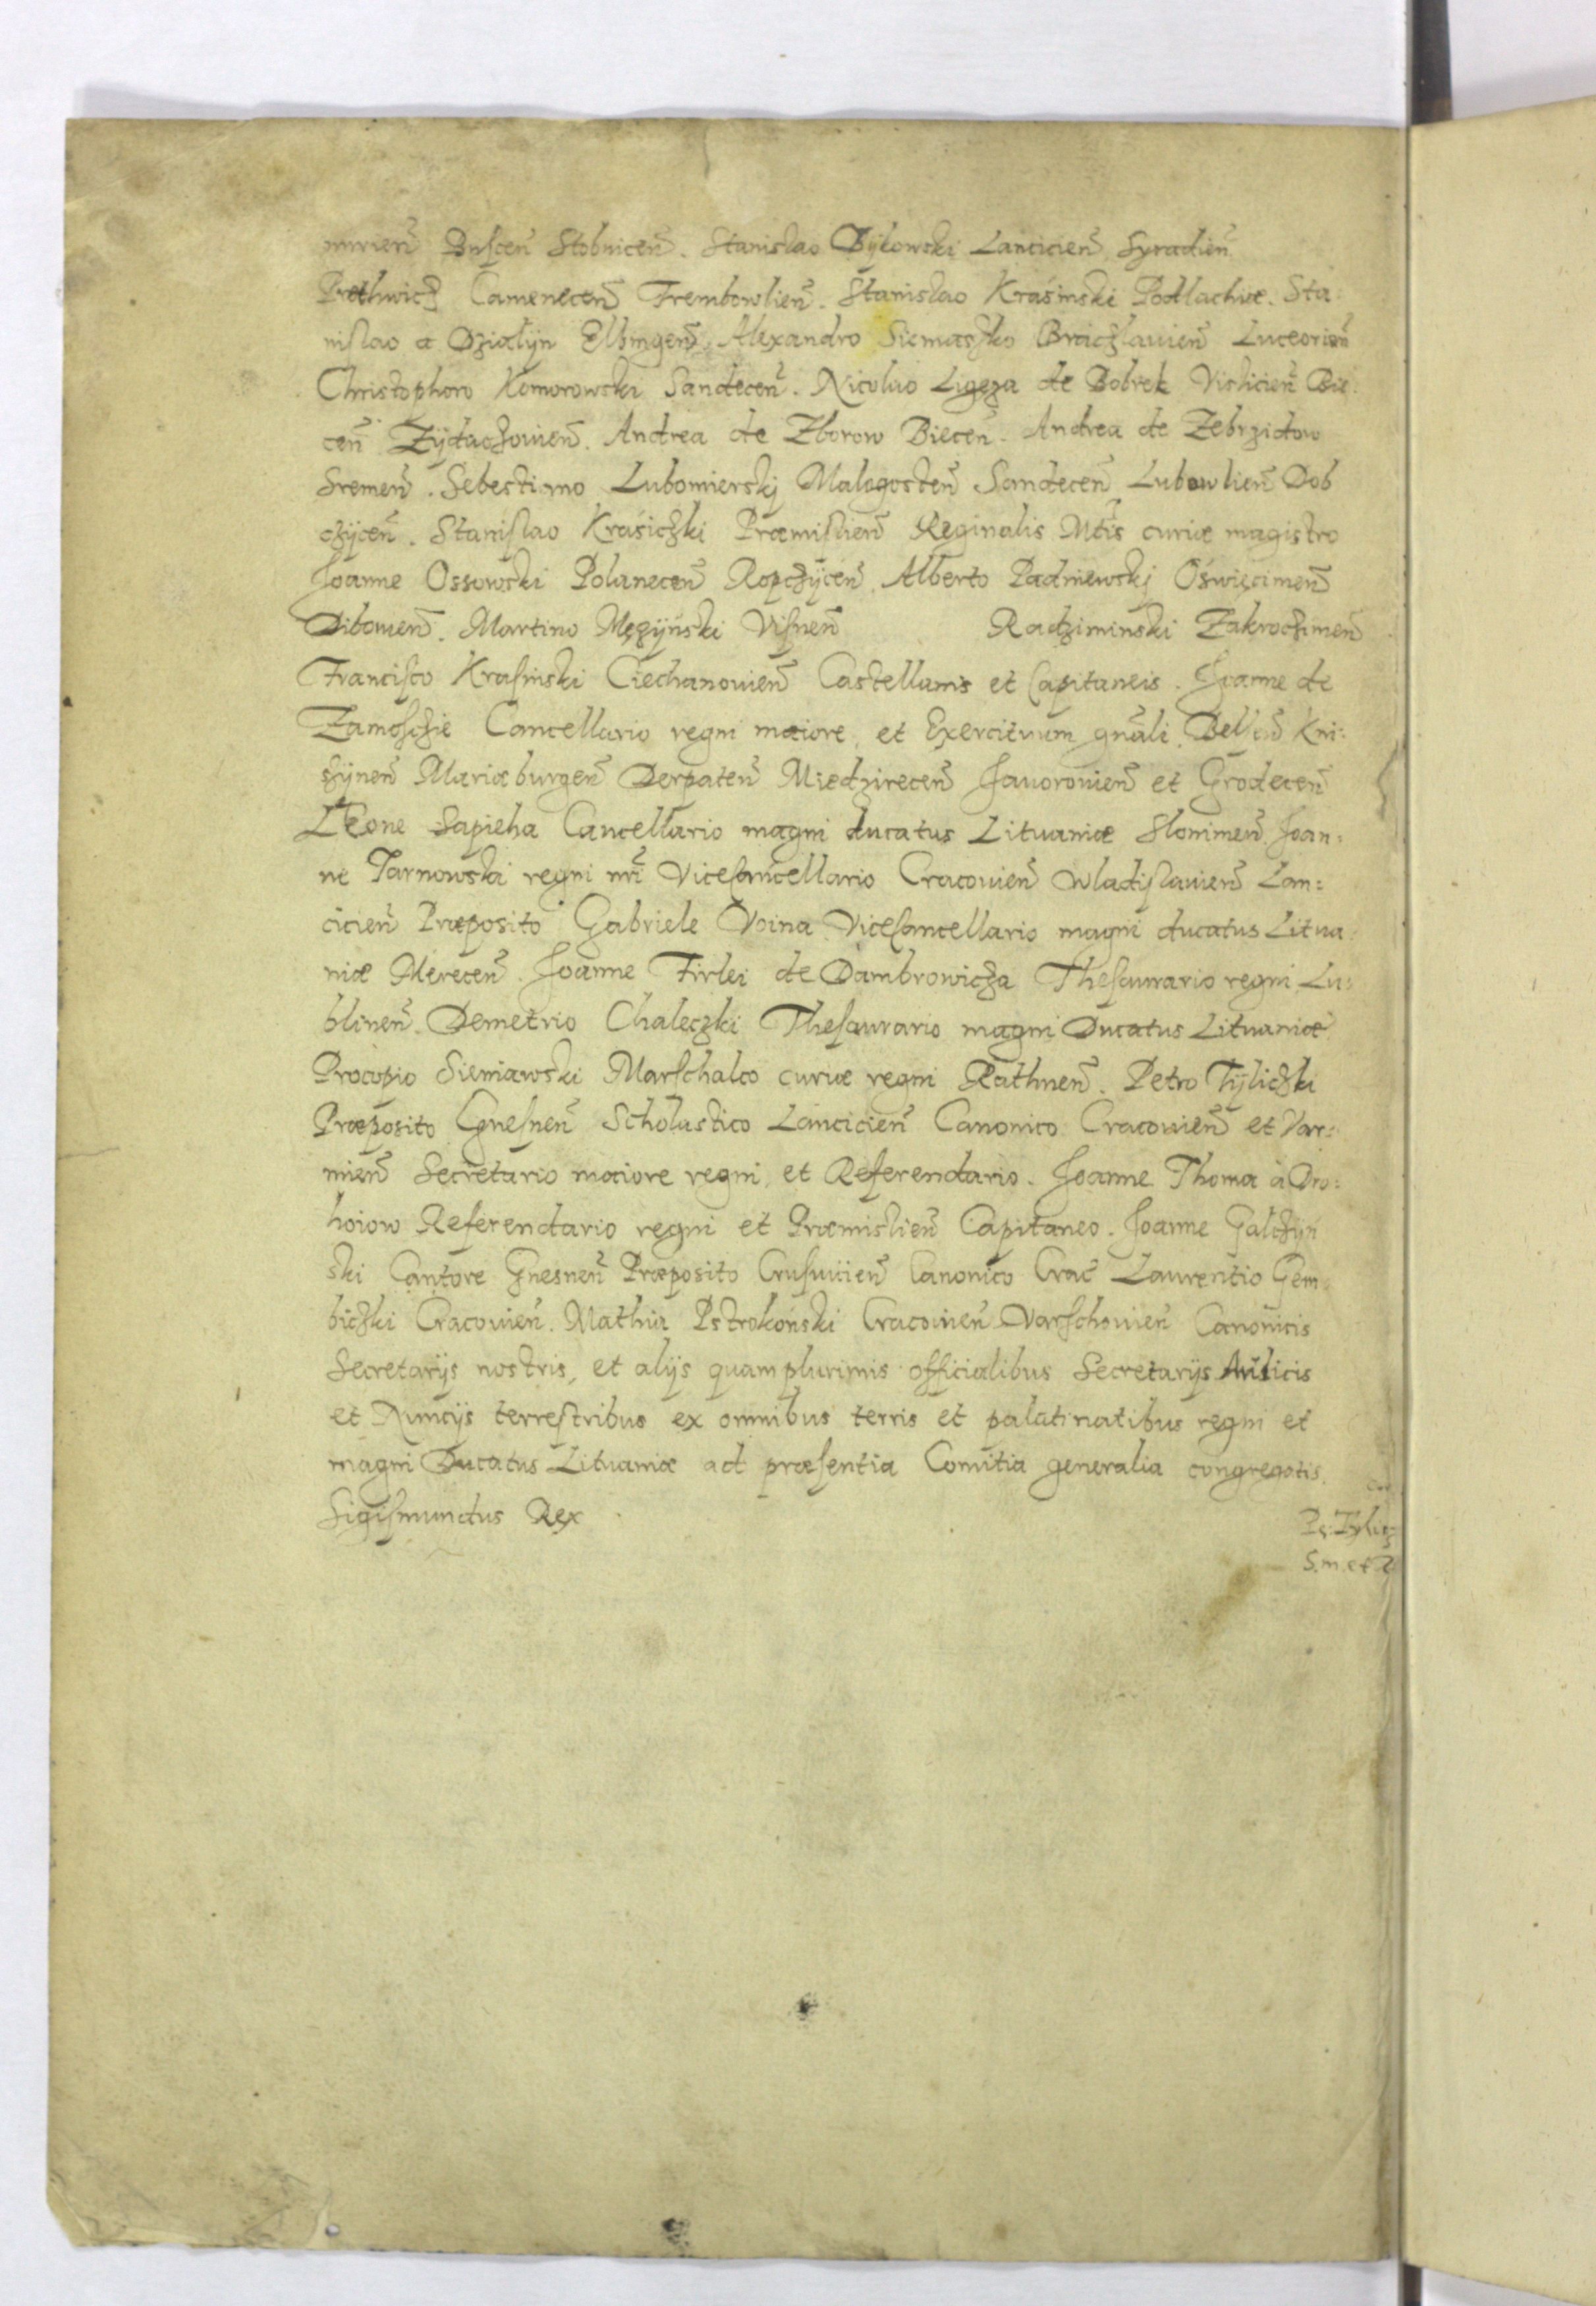 mirien̄ Buscen̄ Stobnicen̄. Stanislao Bÿkowski Lancicien̄ Syradien̄
Prethwicz Camenecen̄ Trembowlien̄. Stanislao Krasinski Podlachiæ. Sta:
nislao a Dzialÿn Elbingen̄ Alexandro Siemaszko Braczlauien̄ Luceorien̄
Christophoro Komorowski Sandecen̄. Nicolao Ligęza de Bobrek Vislicien̄ Bie:
cen̄ Zÿdaczouien̄. Andrea de Zborow Biecen̄. Andrea de Zebrzidow
Sremen̄. Sebestiano Lubomierskj Malogosten̄ Sandecen̄ Lubowlien̄ Dob
czÿcen̄. Stanislao Krasiczki Præmislien̄ Reginalis Mtis curiæ magistro
Joanne Ossowski Polanecen̄ Ropczÿcen̄. Alberto Padniewskj Oswięcimen̄
Dibouien̄. Martino Męzÿński Visnen̄ Radziminski Zakroczimen̄
Francisco Krasinski Ciechanouien̄ Castellanis et Capitaneis. Joanne de
Zamosczie Cancellario regni maiore, et Exercituum gn̄ali, Belzen̄ Kni:
szÿnen̄ Mariæburgen̄ Derpaten̄ Miedzirecen̄ Jauorouien̄ et Grodecen̄
Leone Sapieha Cancellario magni ducatus Lituaniæ Slonimen̄. Joan:
ne Tarnowski regni nr̄i Vicecancellario Cracouien̄ Wladislauien̄ Lan:
cicien̄ Præposito Gabriele Voina Vicecancellario magni ducatus Litua:
niæ Merecen̄. Joanne Firlei de Dambrowicza Thesaurario regni Lu:
blinen̄. Demetrio Chaleczki Thesaurario magni Ducatus Lituaniæ
Procopio Sieniawski Marschalco curiæ regni Rathnen̄. Petro Tÿliczki
Præposito Gnesnen̄ Scholastico Lancicien̄ Canonico Cracouien̄ et Var:
mien̄ Secretario maiore regni, et Referendario. Joanne Thoma à Dro:
hoiow Referendario regni et Præmislien̄ Capitaneo. Joanne Galczÿn
ski Cantore Gnesnen̄ Præposito Crusuicien̄ Canonico Crac̄ Laurentio Gem:
biczki Cracouien̄. Mathia Pstrokoński Cracouien̄ Varschouien̄ Canonicis
Secretarÿs nostris, et alÿs quamplurimis officialibus Secretarÿs Aulicis
et Nuncÿs terrestribus ex omnibus terris et palatinatibus regni et
magni Ducatus Lituaniæ ad præsentia Comitia generalia congregatis.
Sigismundus Rex
S. m. et